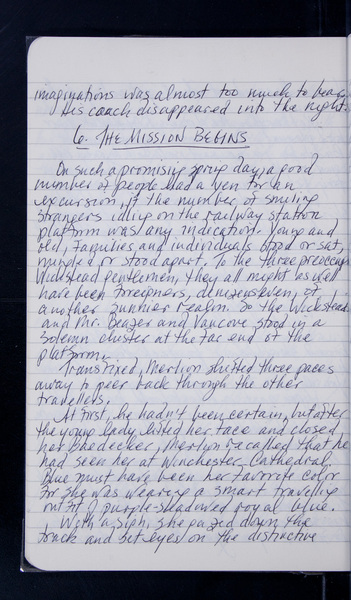 imaginations was almost too much to bear.
His coach disappeared into the night.
6. THE MISSION BEGINS
On such a promising spring day, a good
number of people had a yen for an
excursion, if the number of smiling
strangers idling on the railway station
platform was any indication. Young and
old, families and individuals stood or sat,
mingled or stood apart. To the three
Wickstead gentlemen, they all might as well
have been foreigners, denizens even, of
another sunnier realm. So the Wicksteads
and Mr. Beazer and Vancove stood in a
solemn cluster at the far end of the
platform.
Transfixed, Merlion shifted three paces
away to peer back through the other
travellers.
At first, he hadn't been certain, but after
the young lady lifted her face and closed
her Baedecker, Merlion recalled that he
had seen her at Winchester Cathedral.
Blue must have been her favorite color
for she was wearing a smart traveling
outfit of purple-shadowed royal blue.
With a sigh, she gazed down the
track and set eyes on the distinctive